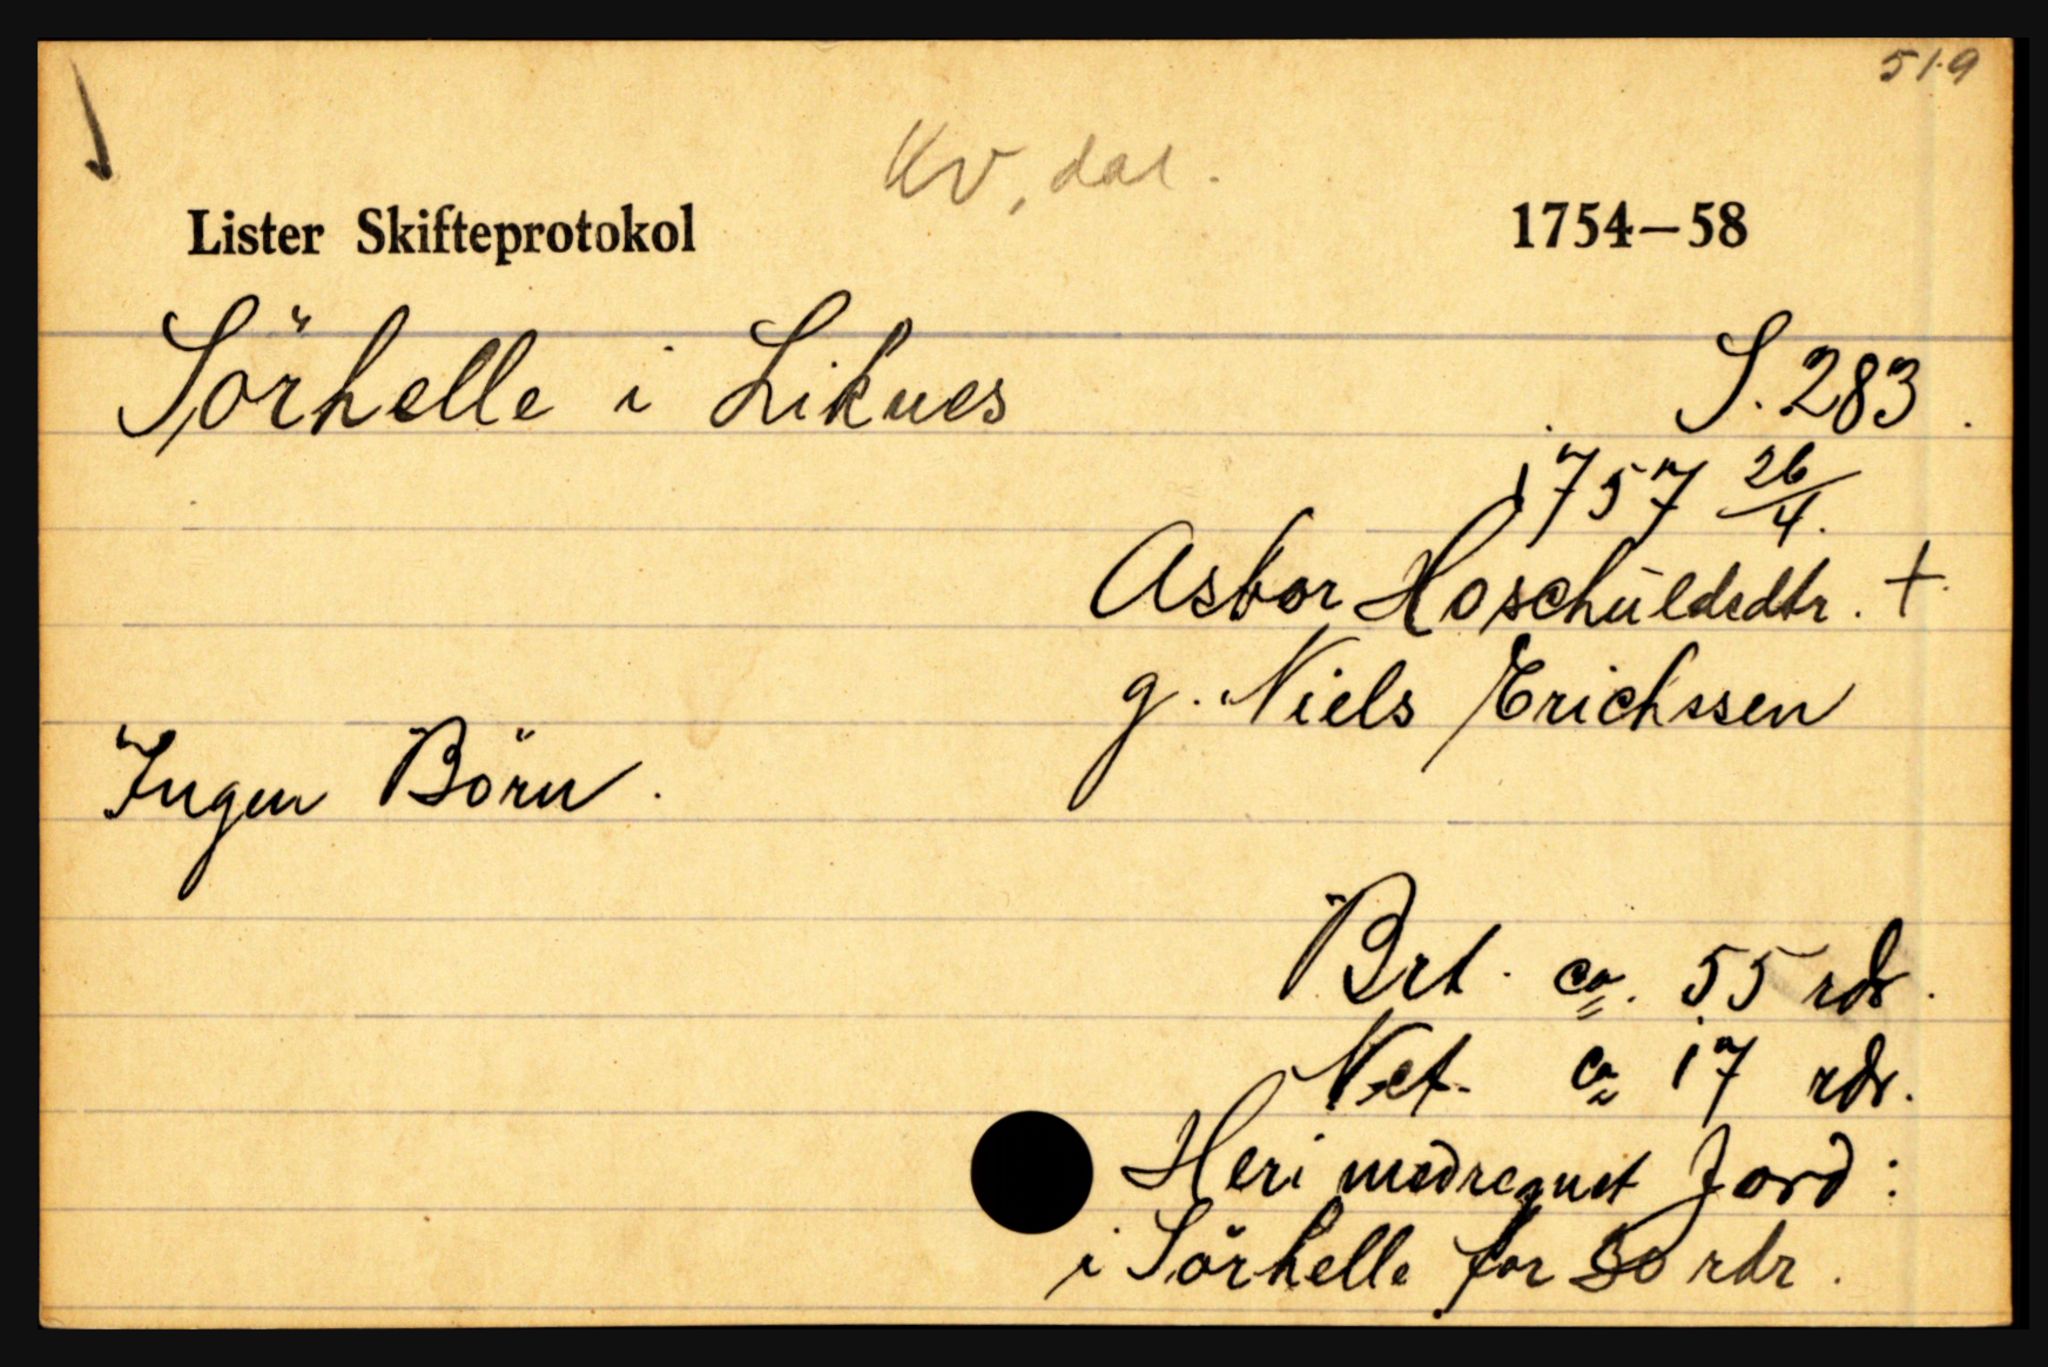 519
Kv, dal.
Lister Skifteprotokol 1754–58
Sörhelle i Liknes S. 283.
1757 26/4.
Asbor Hoschŭldsdtr. +
g. Niels Erichssen
Ingen Börn.
Brt. ca. 55 rdr.
Net. ca 17 rdr.
Heri medregnet Jord:
i Sörhelle for rdr.